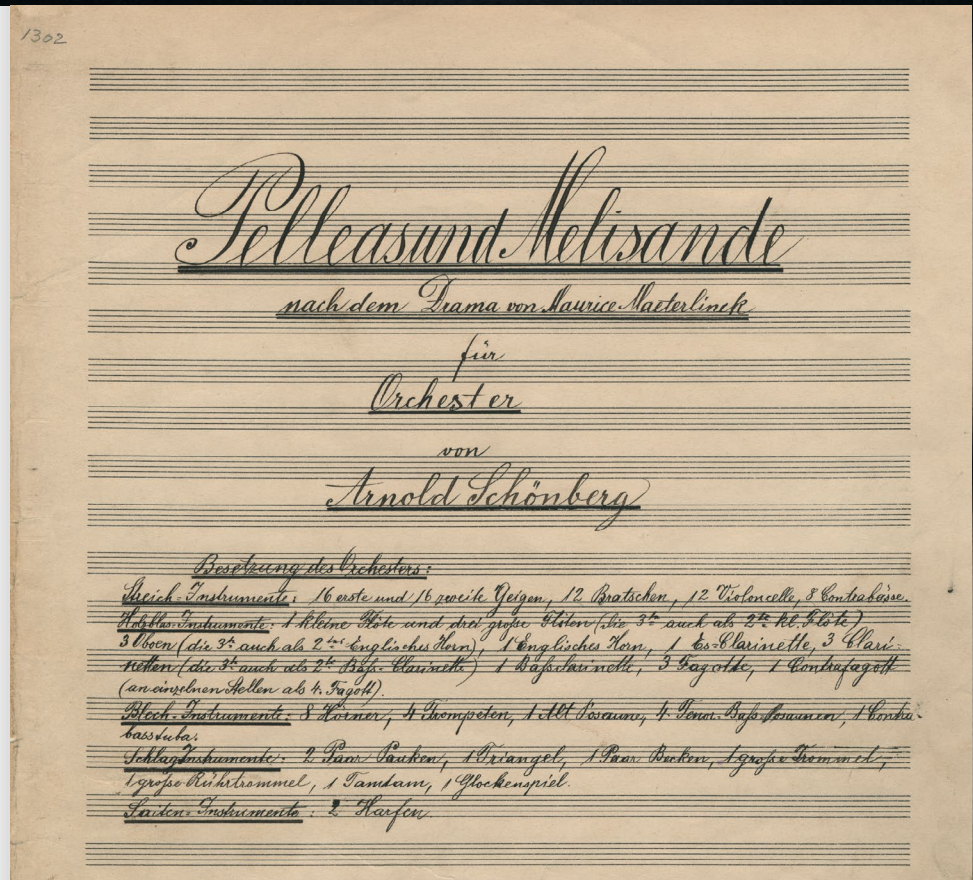 1302
Pelleas und Melisande
nach dem Drama von Maurice Maeterlinck
für
Orchester
von
Arnold Schönberg
Besetzung des Orchesters:
Streich-Instrumente: 16 erste und 16 zweite Geigen, 12 Bratschen, 12 Violoncelle, 8 Contrabässe.
Holzblas-Instrumente: 1 kleine Flöte und drei große Flöten (die 3te auch als 2te kl. Flöte)
3 Oboen (die 3te auch als 2tes Englisches Horn), 1 Englisches Horn, 1 Es-Clarinette, 3 Clari-
netten (die 3te auch als 2te Baß-Clarinett) 1 Baßclarinette, 3 Fagotte, 1 Contrafagott
(an einzelnen Stellen als 4. Fagott).
Blech-Instrumente: 8 Hörner, 4 Trompeten, 1 Alt Posaune, 4 Tenor-Baß Posaunen, 1 Contra-
basstuba.
Schlag Instrumente: 2 Paar Pauken, 1 Triangel, 1 Paar Becken, 1 große Trommel,
1 große Rührtrommel, 1 Tamtam, 1 Glockenspiel.
Saiten-Instrumente: 2 Harfen.